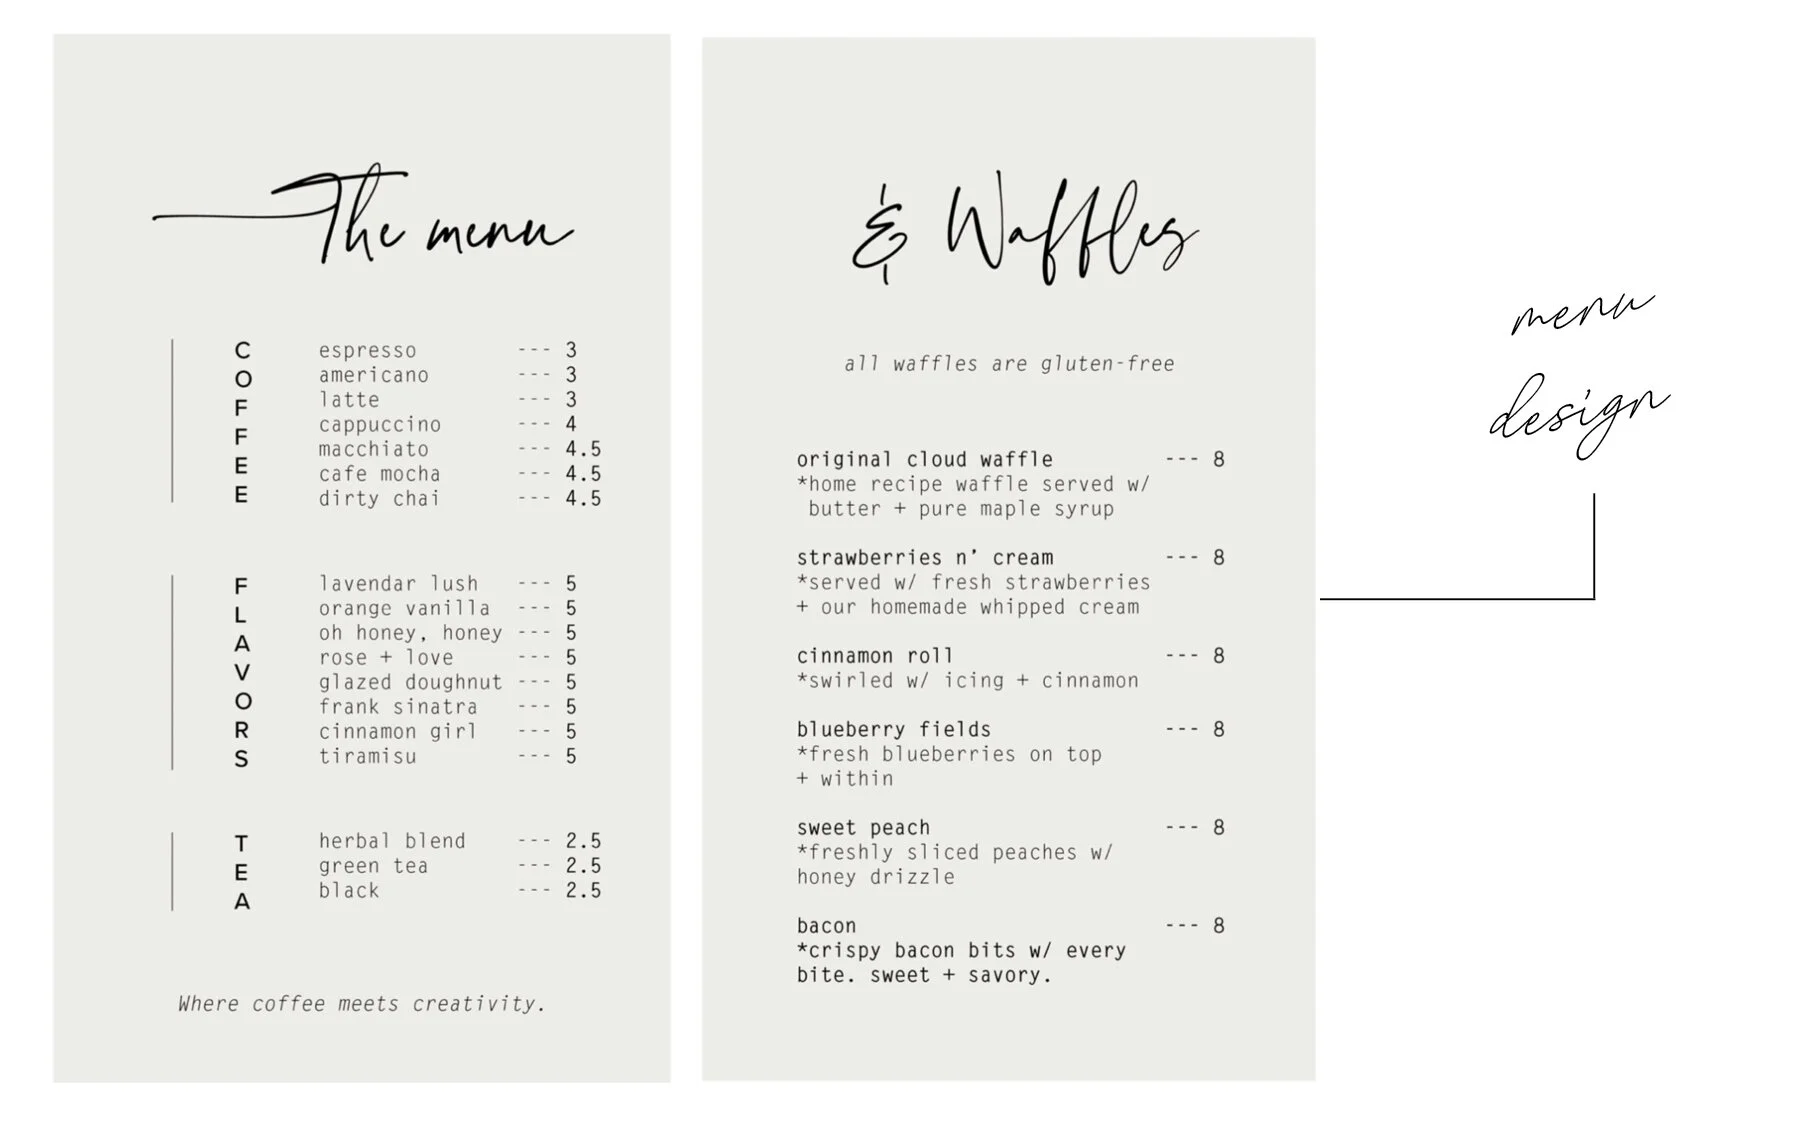 The menu
COFFEE
espresso --- 3
americano --- 3
latte --- 3
cappuccino --- 4
macchiato --- 4.5
cafe mocha --- 4.5
dirty chai --- 4.5
FLAVORS
lavendar lush --- 5
orange vanilla --- 5
oh honey, honey --- 5
rose + love --- 5
glazed doughnut --- 5
frank sinatra --- 5
cinnamon girl --- 5
tiramisu --- 5
TEA
herbal blend --- 2.5
green tea --- 2.5
black --- 2.5
Where coffee meets creativity.
& Waffles
all waffles are gluten-free
original cloud waffle --- 8
*home recipe waffle served w/
butter + pure maple syrup
strawberries n’ cream --- 8
*served w/ fresh strawberries
+ our homemade whipped cream
cinnamon roll --- 8
*swirled w/ icing + cinnamon
blueberry fields --- 8
*fresh blueberries on top
+ within
sweet peach --- 8
*freshly sliced peaches w/
honey drizzle
bacon --- 8
*crispy bacon bits w/ every
bite. sweet + savory.
menu
design